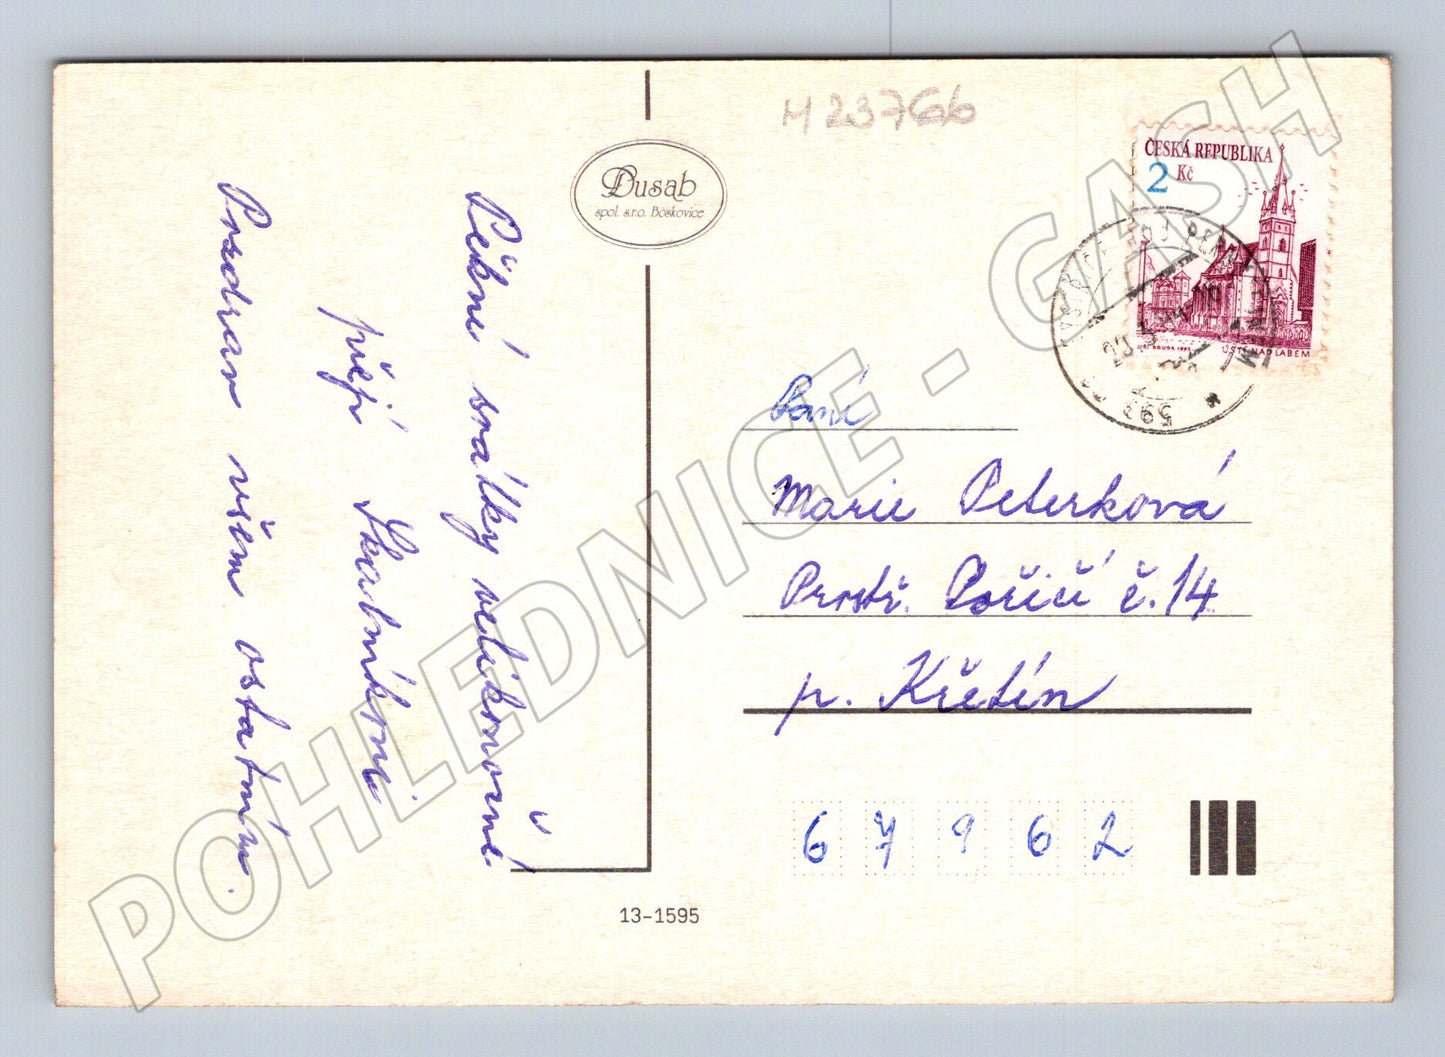 M 23766
Dusab
spol. s.r.o. Boskovice
ČESKÁ REPUBLIKA
2 Kč
ÚSTÍ NAD LABEM
593
Pěkné svátky velikonoční
přejí Skalníkovi
Pozdrav všem ostatním.
Paní
Marie Peterková
Prostř. Poříčí č. 14
p. Křetín
67962
13-1595
POHLEDNICE - GASH